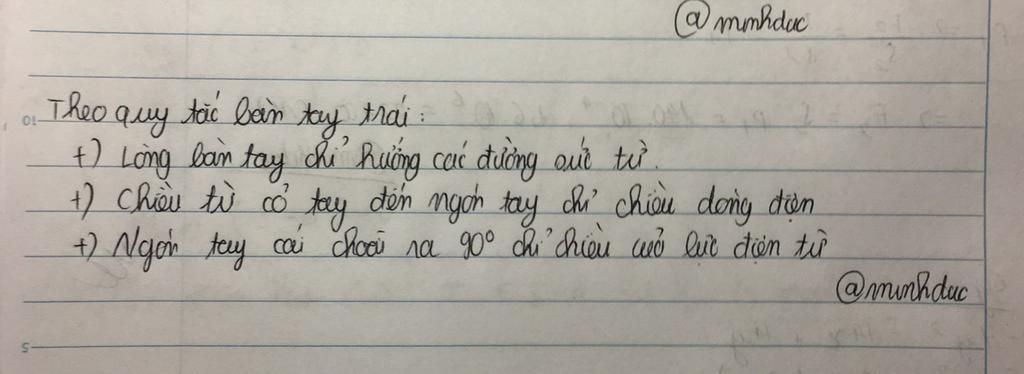 @minhduc
Theo quy tắc bàn tay trái:
+) Lòng bàn tay chỉ hướng các đường sức từ.
+) Chiều từ cổ tay đến ngón tay chỉ chiều dòng điện
+) Ngón tay cái choãi ra 90° chỉ chiều của lực điện từ
@minhduc
10
5